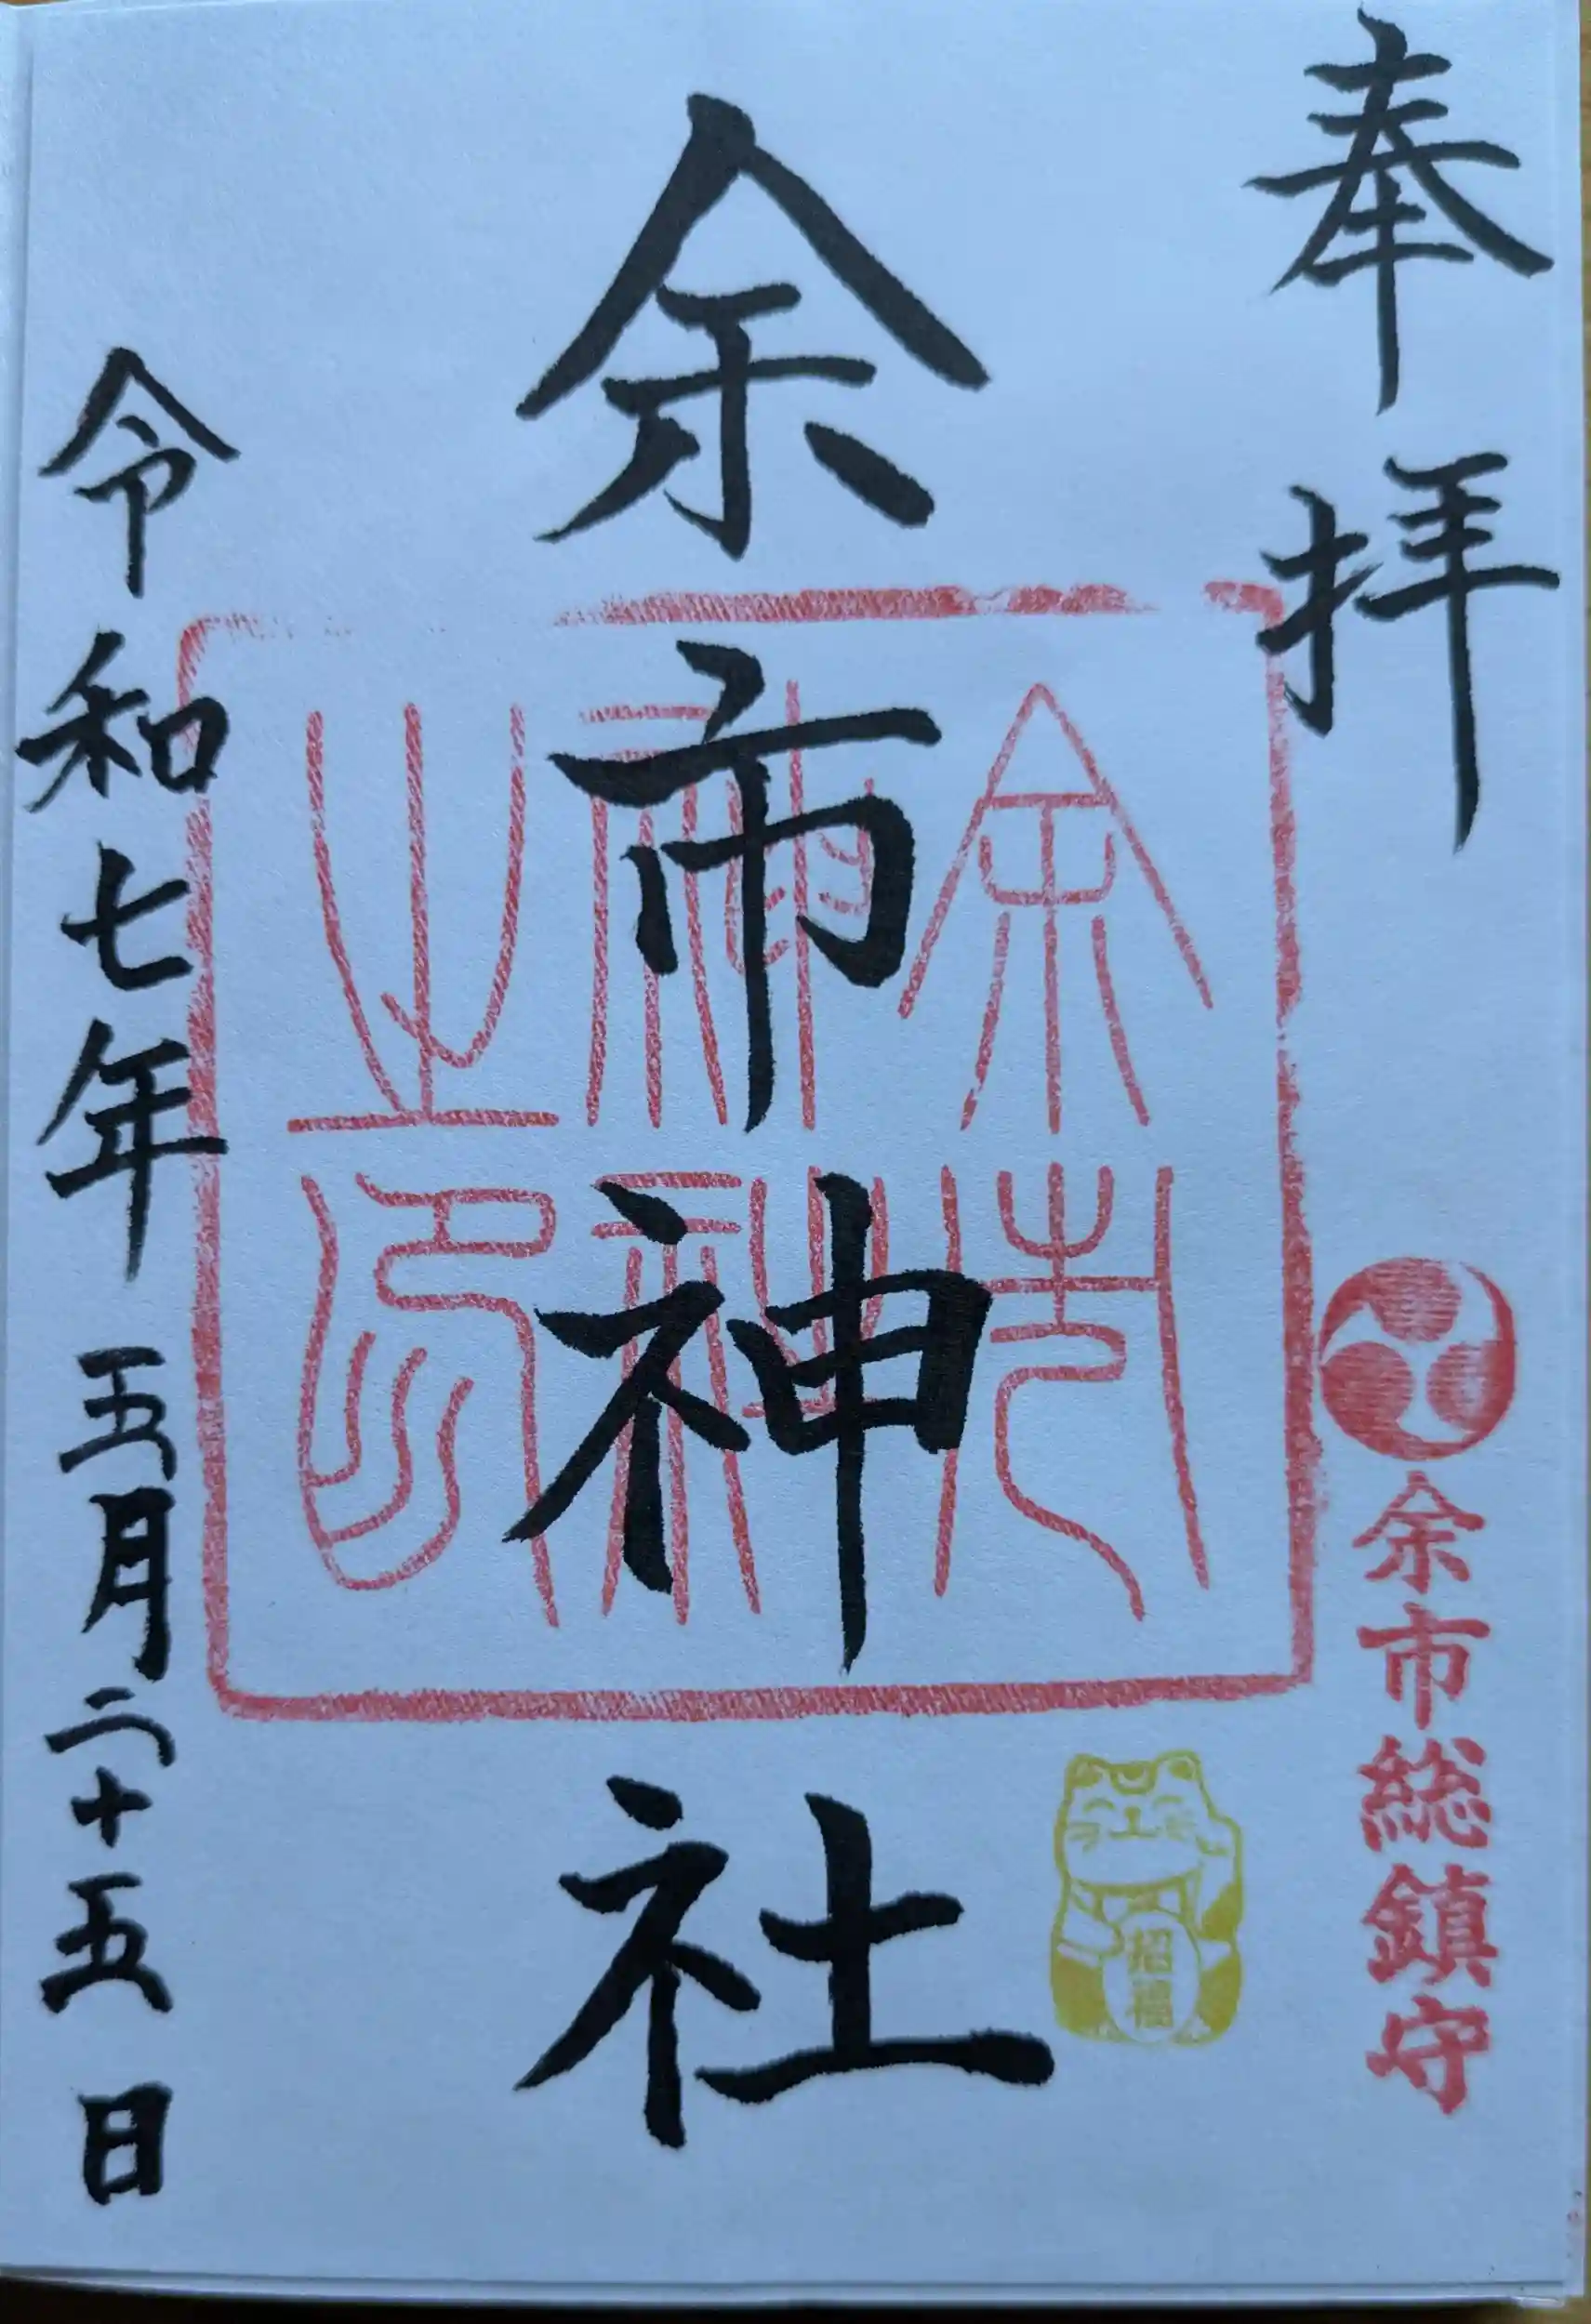 奉拝
余市総鎮守
招福
余市神社
余市神社之印
令和七年五月二十五日